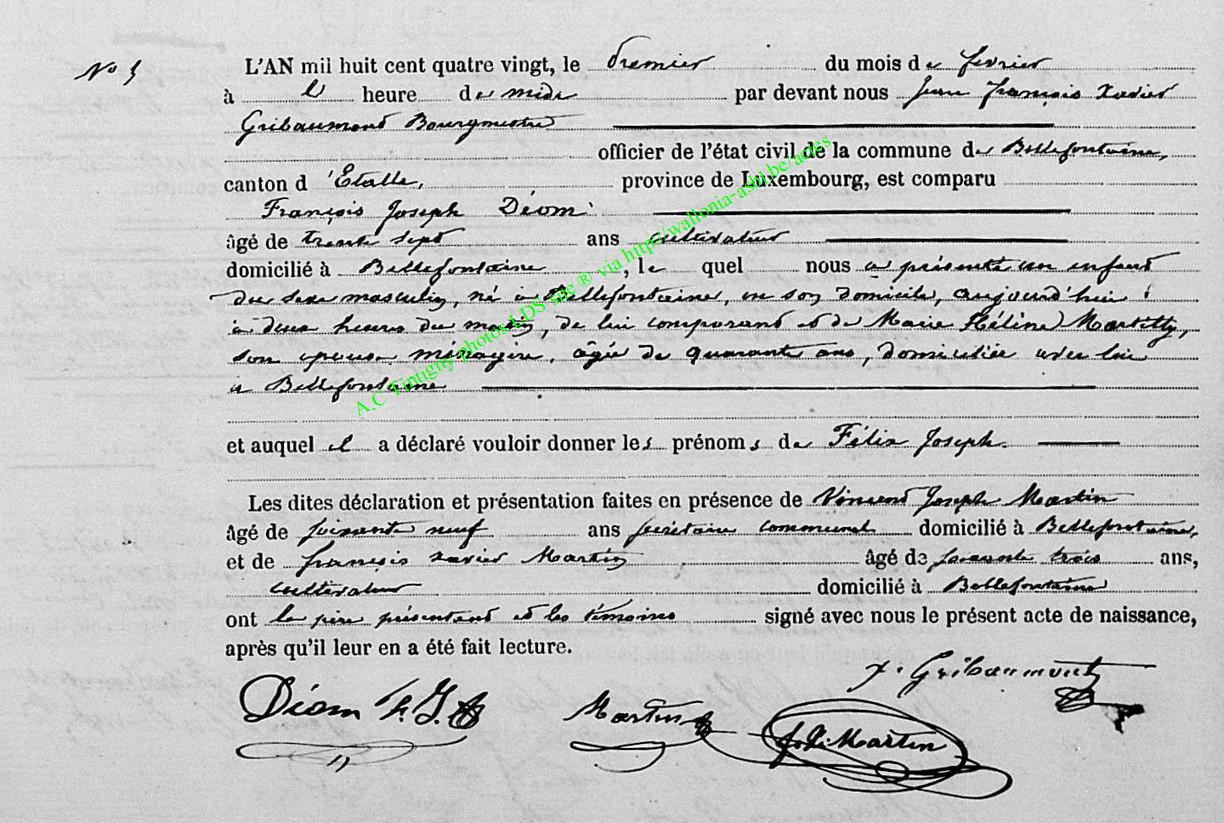 No 5
L'AN mil huit cent quatre vingt, le premier du mois de février
à l' heure de midi par devant nous Jean François Xavier
Gribaumont Bourgmestre
officier de l'état civil de la commune de Bellefontaine,
canton d'Etalle, province de Luxembourg, est comparu
François Joseph Déom
âgé de trente sept ans cultivateur
domicilié à Bellefontaine, le quel nous a présenté un enfant
du sexe masculin, né à Bellefontaine, en son domicile, aujourd'hui
à deux heures du matin, de lui comparant et de Marie Hélène
son épouse ménagère, âgée de quarante ans, domiciliée avec lui
à Bellefontaine
et auquel il a déclaré vouloir donner les prénoms de Félix Joseph.
Les dites déclaration et présentation faites en présence de Vincent Joseph Martin
âgé de neuf ans secrétaire communal domicilié à Bellefontaine,
et de François Xavier Martin âgé de trois ans,
cultivateur domicilié à Bellefontaine
ont le père présentant et les témoins signé avec nous le présent acte de naissance,
après qu'il leur en a été fait lecture.
Gribaumont
Déom F. J. Martin Martin
A.C Tintigny photos LDS site ® via http://wallonia-asbl.be/actes